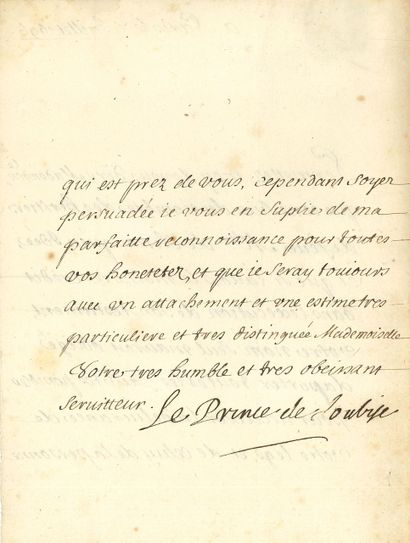 qui est prez de vous, cependant soyez
persuadée ie vous en suplie de ma
parfaitte reconnoissance pour toutes
vos honetetez, et que ie seray toujours
auec vn attachement et vne estime tres
particuliere et tres distinguée Mademoiselle
Votre tres humble et tres obeissant
seruitteur. Le Prince de Soubise